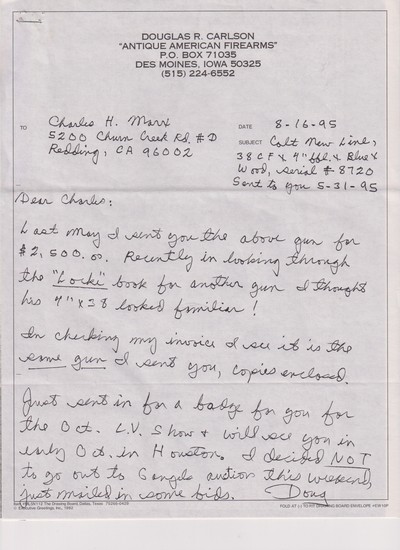 DOUGLAS R. CARLSON
"ANTIQUE AMERICAN FIREARMS"
P.O. BOX 71035
DES MOINES, IOWA 50325
(515) 224-6552
TO Charles H. Marx
5200 Churn Creek Rd. #D
Redding, CA 96002
DATE 8-16-95
SUBJECT Colt New Line,
38 CF x 4" bbl. x Blue x
Wood, serial # 8720
Sent to you 5-31-95
Dear Charles:
Last May I sent you the above gun for
$2,500.00. Recently in looking through
the "Locke" book for another gun I thought
his 4" x 38 looked familiar!
In checking my invoice I see it is the
same gun I sent you, copies enclosed.
Just sent in for a badge for you for
the Oct. L.V. Show & will see you in
early Oct. in Houston. I decided NOT
to go out to auction this weekend,
just mailed in some bids. Doug
The Drawing Board, Dallas, Texas
© Executive Greetings, Inc.
FOLD AT (-) TO FIT DRAWING BOARD ENVELOPE